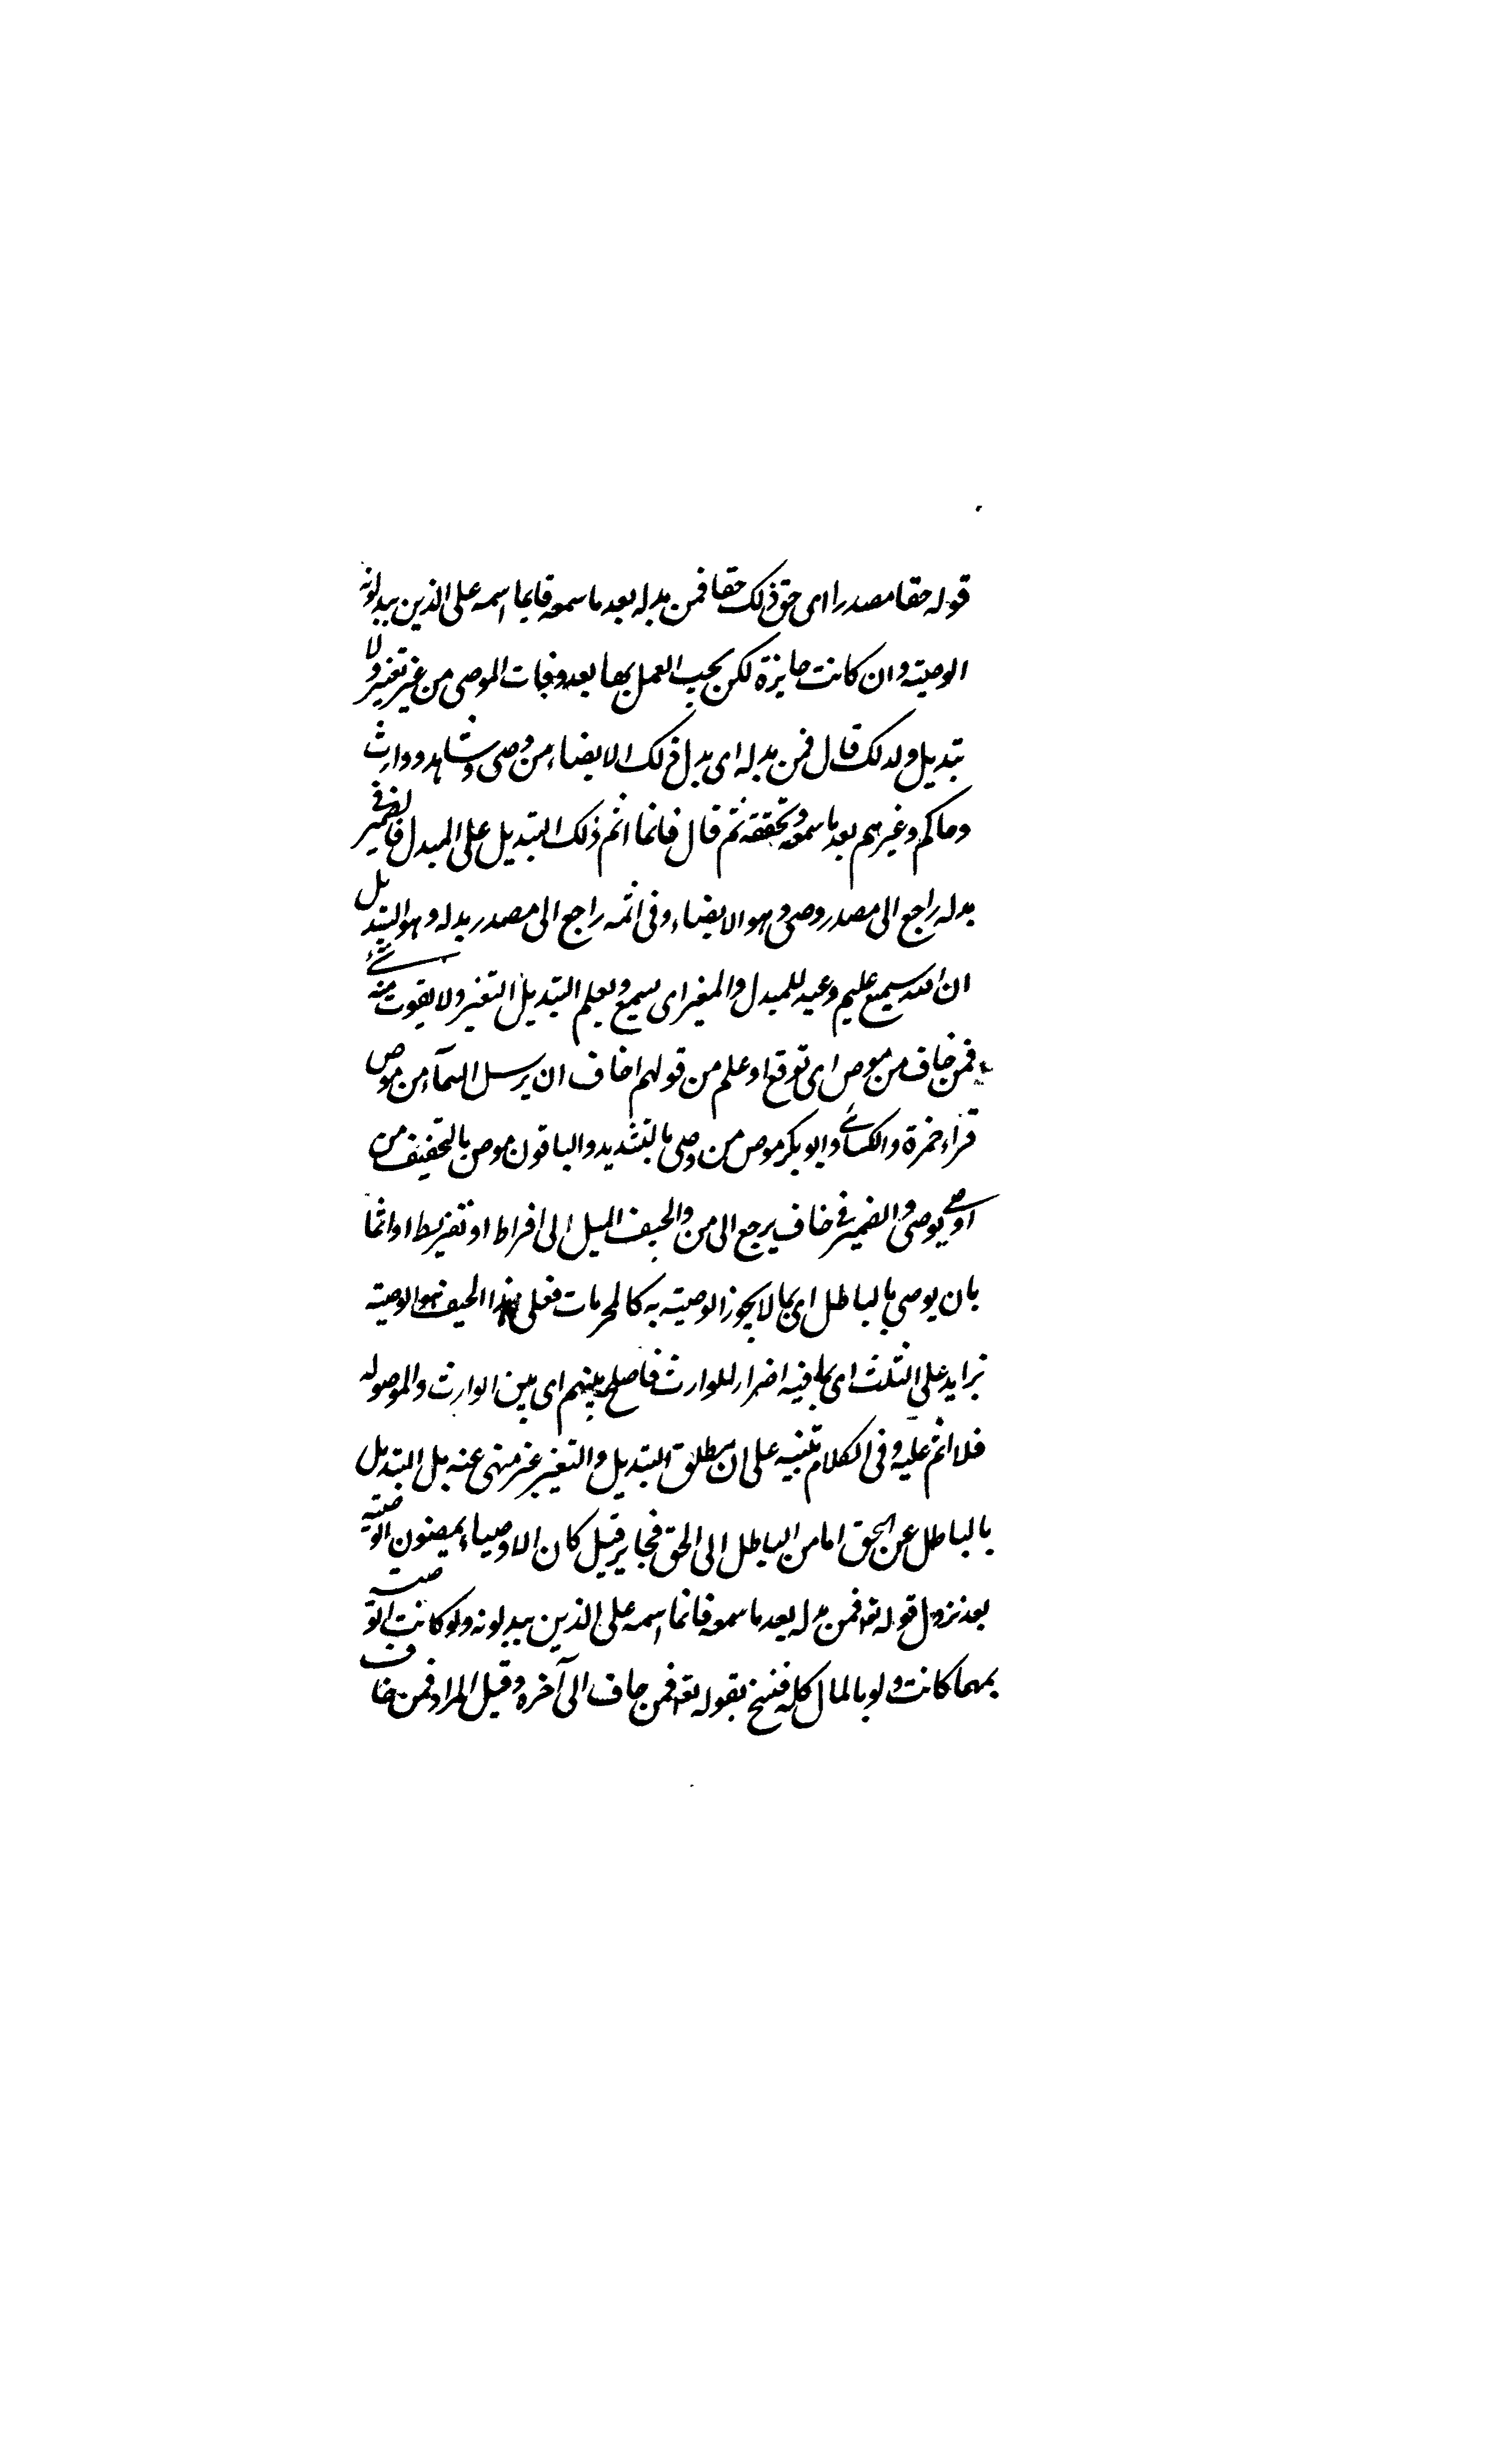 قوله حقا مصدرا اى حق ذلك حقا فمن بدله بعد ما سمعه فانما اسمه على الذين يبدلونه
الوصيته وان كانت جايزة لكن يجب العمل بها بعد وفات الموصى من غير تغيير ولا
تبديل ولذلك قال فمن بدله اى بدل ذلك الايصاء من وصى وشاهد ووارث
وحاكم وغيرهم بعد ما سمعه وتحققه ثم قال فانما اثم ذلك التبديل على المبدل فالضمير فى
بدله راجع الى مصدر وصى وهو الايصاء وفى اثمه راجع الى مصدر بدله وهو التبديل
ان الله سميع عليم وعيد للمبدل والمغير اى سميع ويعلم التبديل التغير ولا يفوت منه شئ
فمن خاف من موص اى توقع او علم من قولهم اخاف ان يرسل السمآء من موص
قراء حمزة والكسائے وابو بكر موص من وصى بالتشديد والباقون موص بالتخفيف من
اوصے يوصى والضمير فى خاف يرجع الى من والجنف الميل الى افراط او تفريط او اثما
بان يوصى بالباطل اى بما لا يجوز الوصيته به كالمحرمات فعلى هذا الحيف هو الوصيته
بزايد على الثلث اى بما فيه اضرار للوارث فاصلح بينهم اى بين الوارث والموصوله
فلا اثم عليه وفى الكلام تنبيه على ان مطلق التبديل والتغير غير منهى عنه بل التبديل
بالباطل عن الحق اما من الباطل الى الحق فجايز قيل كان الاوصياء يمضون الوصيته
بعد نزول قوله تعه فمن بدله بعد ما سمعه فانما اسمه على الذين يبدلونه ولو كانت الوصيت
بمهما كانت ولو بالمال كله فنسخ بقوله تعه فمن خاف الى آخره وقيل المراد فمن خاف